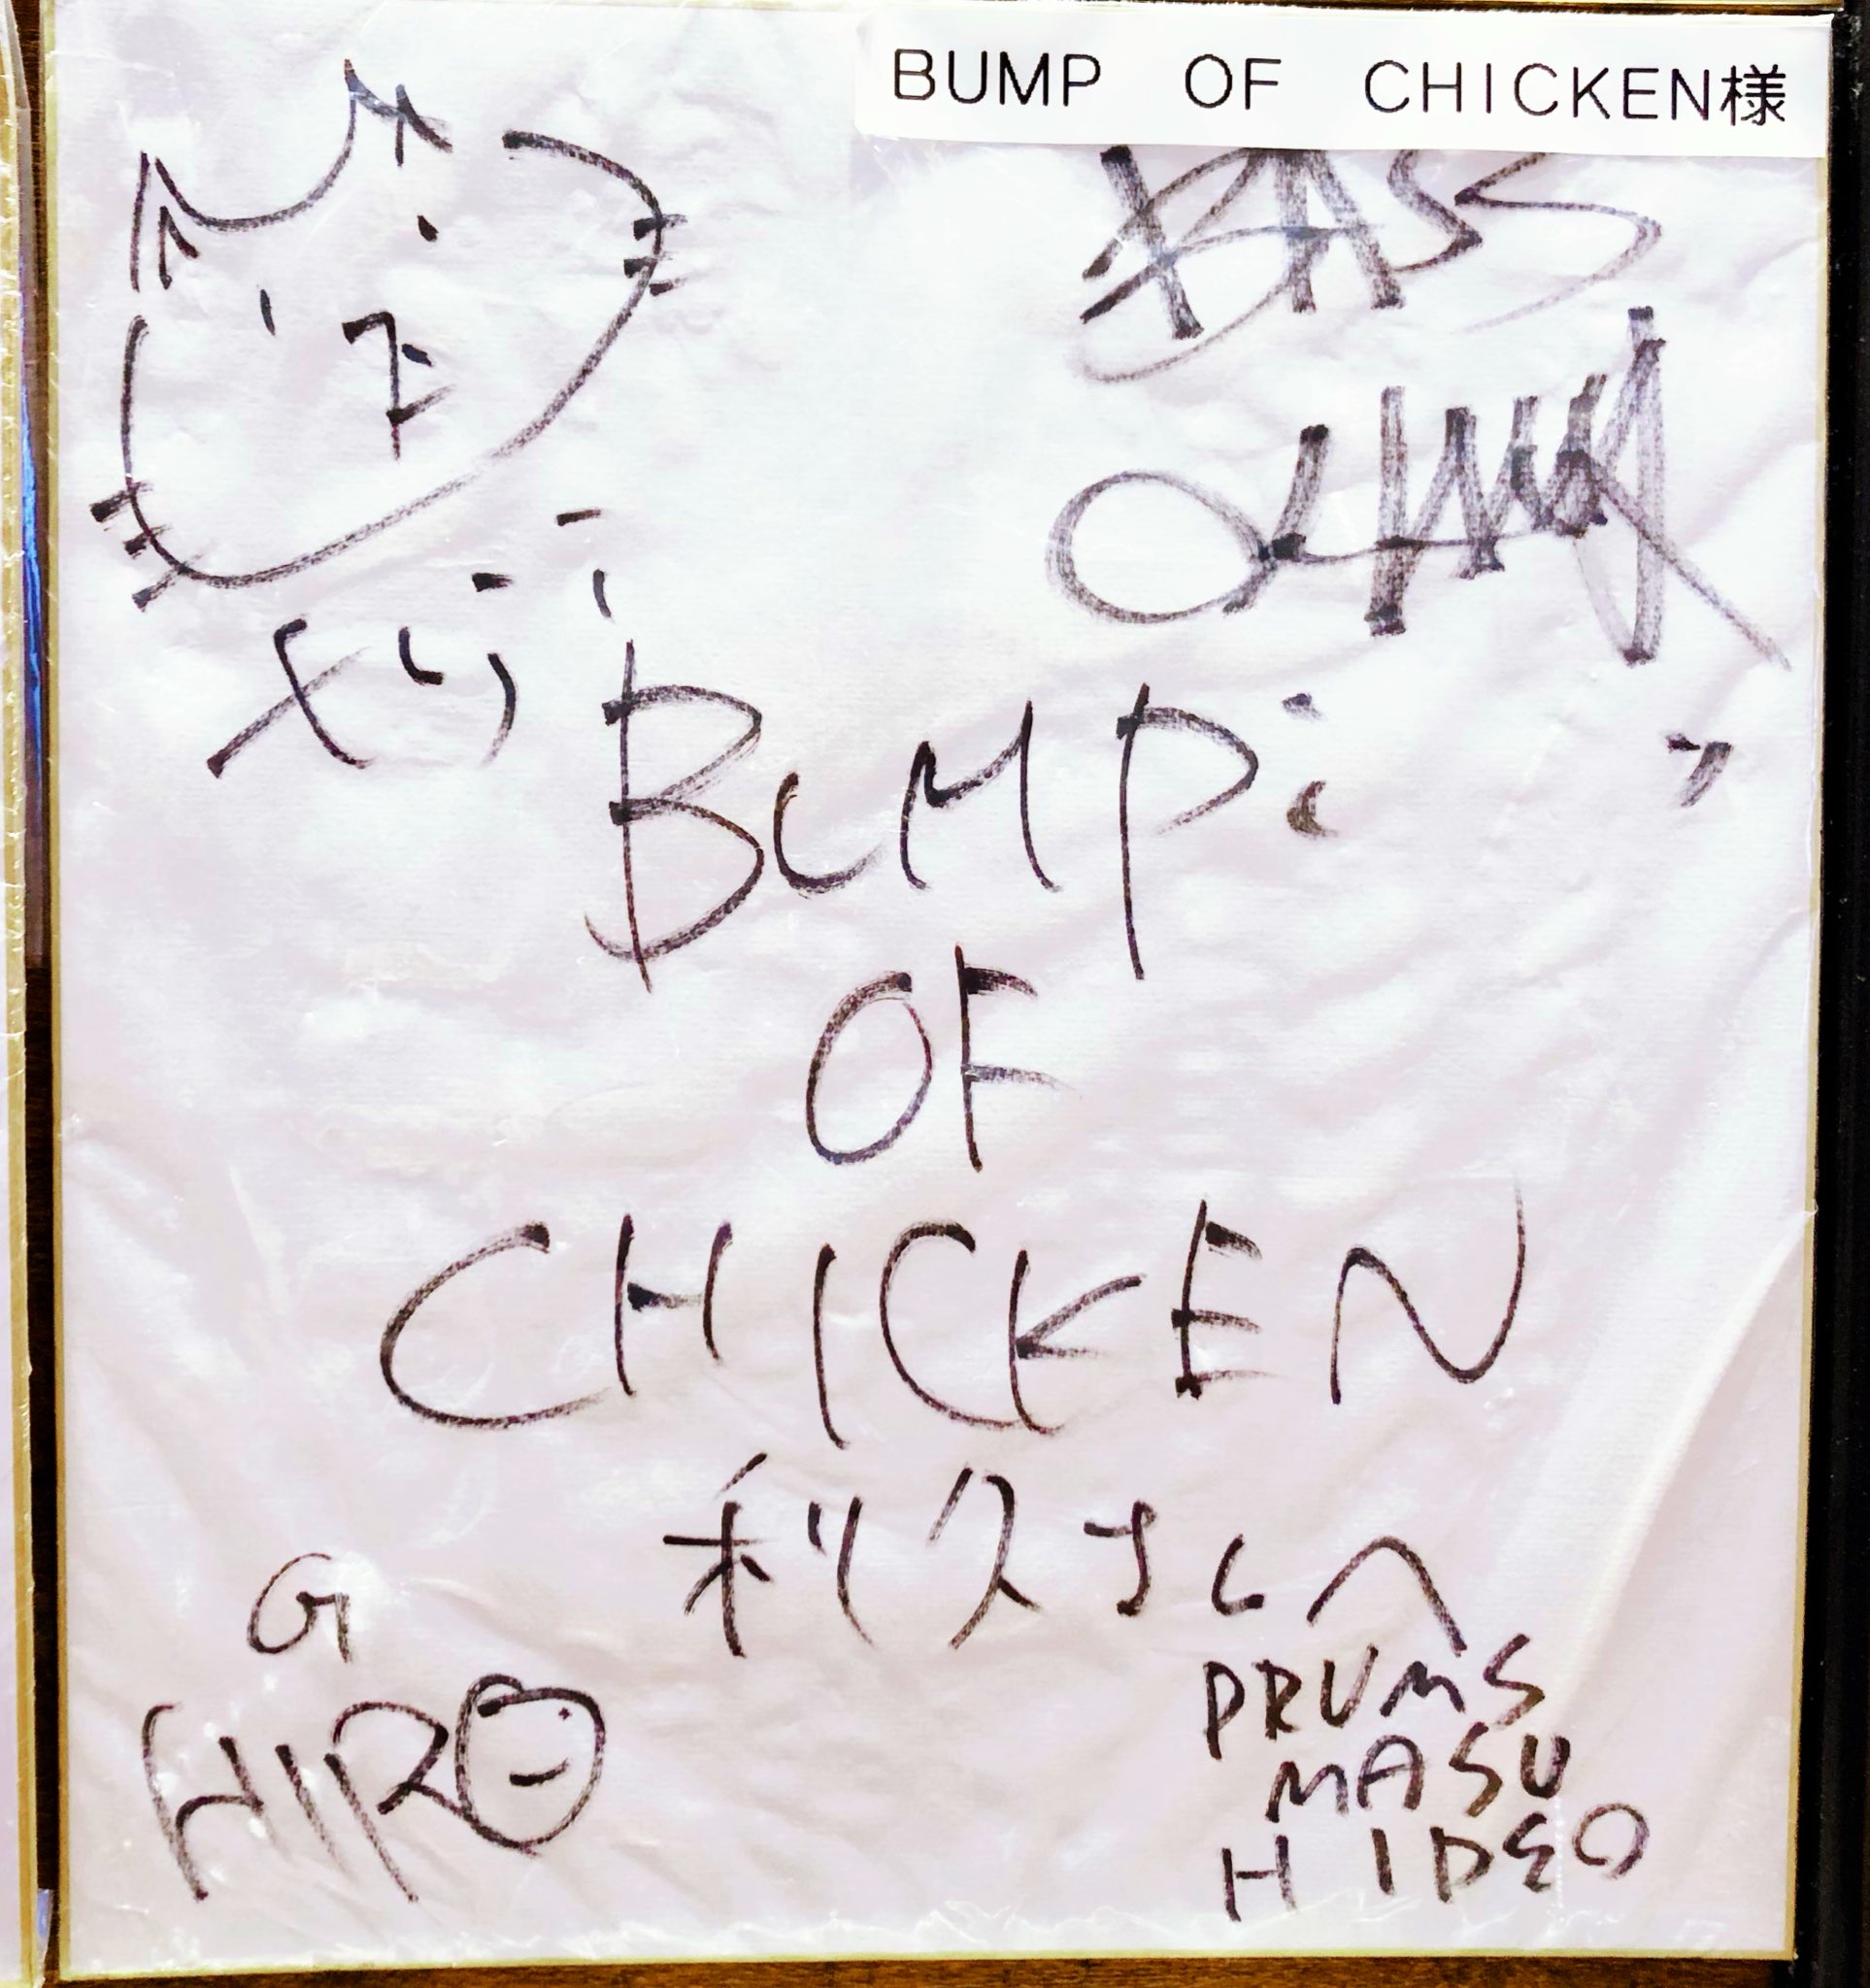 BUMP OF CHICKEN様
BASS
BUMP
OF
CHICKEN
利久さんへ
G
HIRO
DRUMS
MASU
HIDEO